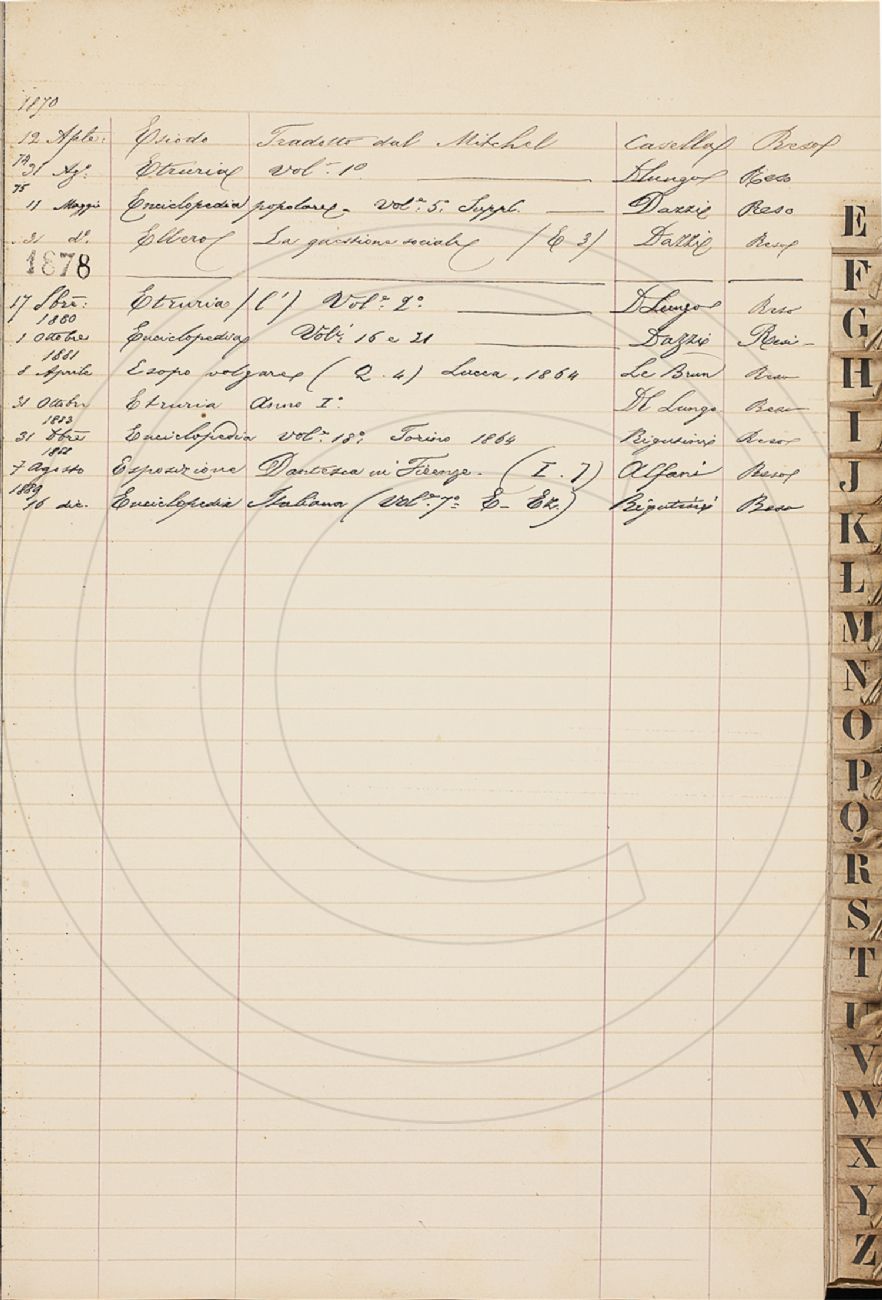 1870
12 Aple: Esiodo Tradotto dal Mitchel Casella Reso
74
31 Ago. Etruria Vol. 1o DLungo Reso
75
11 Maggio Enciclopedia popolare. Vole. 5. Suppl. Dazzi Reso
31 do. Ellero La questione sociale / E 3/ Dazzi Reso
1878
17 Etruria / C') Vole. 2o DLungo Reso
1880
1 Ottobre Enciclopedia Voli. 16 e 21 Dazzi Resi
1881
8 Aprile Esopo volgare ( Q. 4) Lucca, 1864 Le Brun Reso
31 Ottobre Etruria Anno Io. Dl Lungo Reso
1883
31 Enciclopedia vole. 18o. Torino 1864 Rigutini Reso
1888
7 Agosto Esposizione Dantesca in Firenze. (I. 7) Alfani Reso
1889
16 dic. Enciclopedia Italiana (Vole. 7o: E- Ez.) Rigutini Reso
E
F
G
H
I
J
K
L
M
N
O
P
Q
R
S
T
U
V
W
X
Y
Z